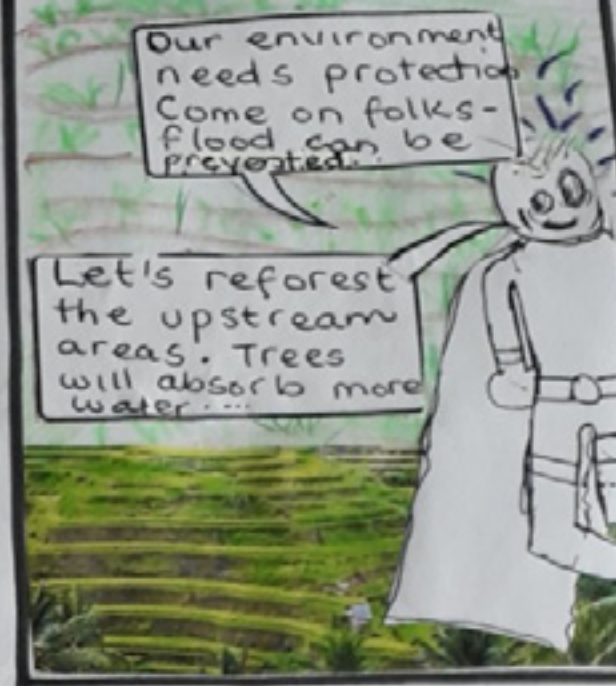 Our environment
needs protection
Come on folks-
flood can be
prevented..
Let's reforest
the upstream
areas. Trees
will absorb more
water....